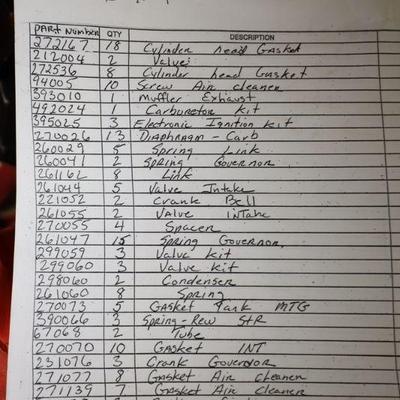 PART NUMBER QTY DESCRIPTION
272167 18 Cylinder head Gasket
212004 2 Valve
272536 8 Cylinder head Gasket
94005 10 Screw Air cleaner
393010 1 Muffler Exhaust
492024 1 Carburetor Kit
395025 3 Electronic Ignition Kit
270026 13 Diaphragm - Carb
260029 5 Spring Link
260041 2 Spring Governor
261162 8 Link
261044 5 Valve Intake
221052 2 Crank Bell
261055 2 Valve Intake
270055 4 Spacer
261047 15 Spring Governor
299059 3 Valve Kit
299060 3 Valve kit
298060 2 Condenser
261060 8 Spring
270073 5 Gasket Tank MTG
390066 3 Spring - Rew STR
67068 2 Tube
270070 10 Gasket INT
231076 3 Crank Governor
271077 8 Gasket Air Cleaner
271139 7 Gasket Air Cleaner